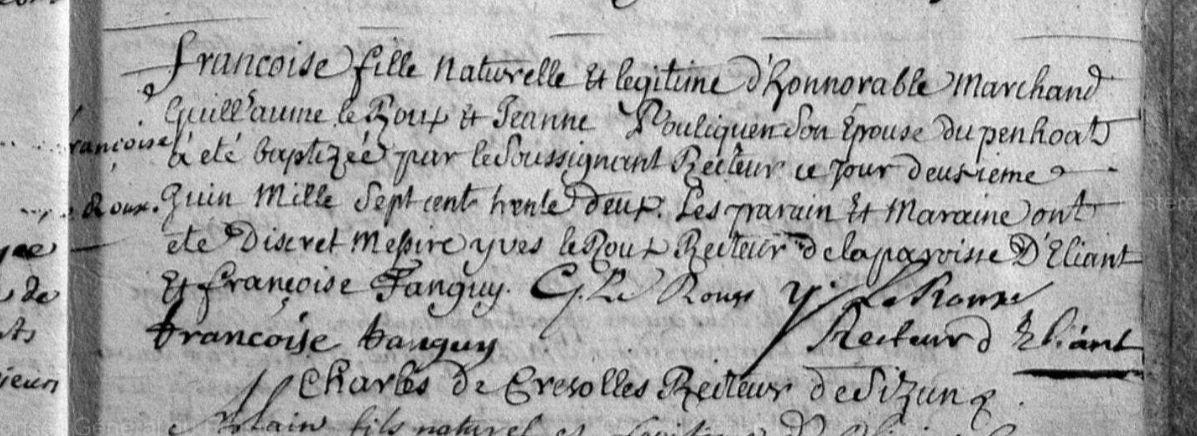 françoise fille naturelle et legitime d'honnorable marchand
Guill'aume le Roux et Jeanne Pouliquen son Epouse du penhoat
françoise
à eté baptizéé par le Soussignant Recteur ce jour deusieme
Roux.
Juin mille sept cent trente deux. Les parain et Maraine ont
eté Discret Messire yves le Roux Recteur de la paroisse D'Eliant
Et françoise Tanguy. G. Le Roux y. Le Roux
françoise tanguy Recteur d Eliant
Charles de Cresolles Recteur de Sizun
Alain fils naturel et